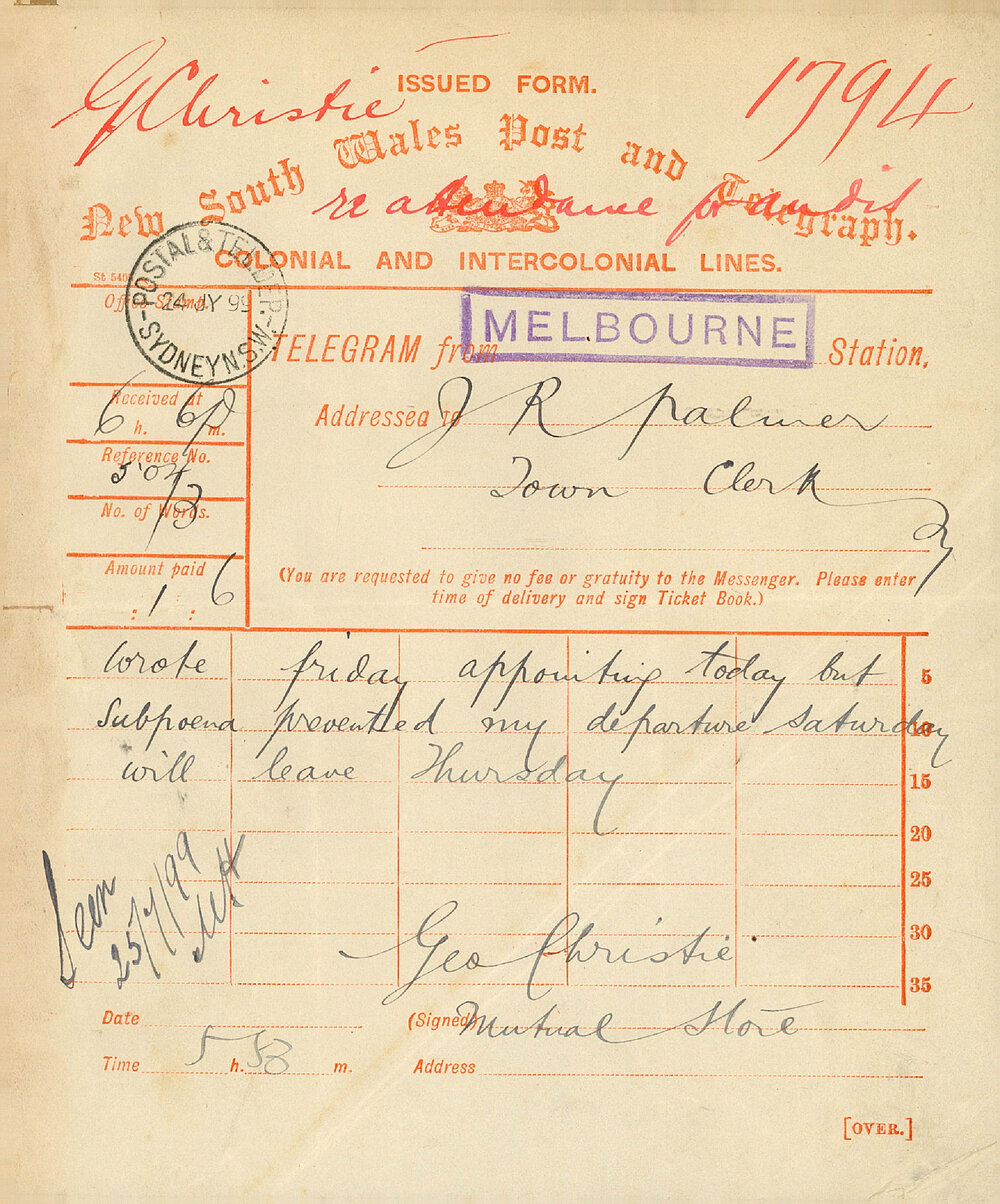 G Christie
ISSUED FORM.
1794
New South Wales Post and Telegraph.
re attendance for audit
COLONIAL AND INTERCOLONIAL LINES.
St 540
POSTAL & TEL. DEP.
24 JY 99
SYDNEY N.S.W.
Office Stamp.
TELEGRAM from MELBOURNE Station,
Received at
6 h. 6 p m.
Addressed to J R Palmer
Reference No.
504
Town Clerk
No. of Words.
13
Amount paid
: 1 : 6
(You are requested to give no fee or gratuity to the Messenger. Please enter
time of delivery and sign Ticket Book.)
Wrote friday appointing today but 5
Subpoena prevented my departure Saturday 10
will leave Thursday 15
20
25
30
35
Seen
25/7/99
Geo Christie
Date
(Signed) Mutual Store
Time 5 h. 58 m.
Address
[OVER.]